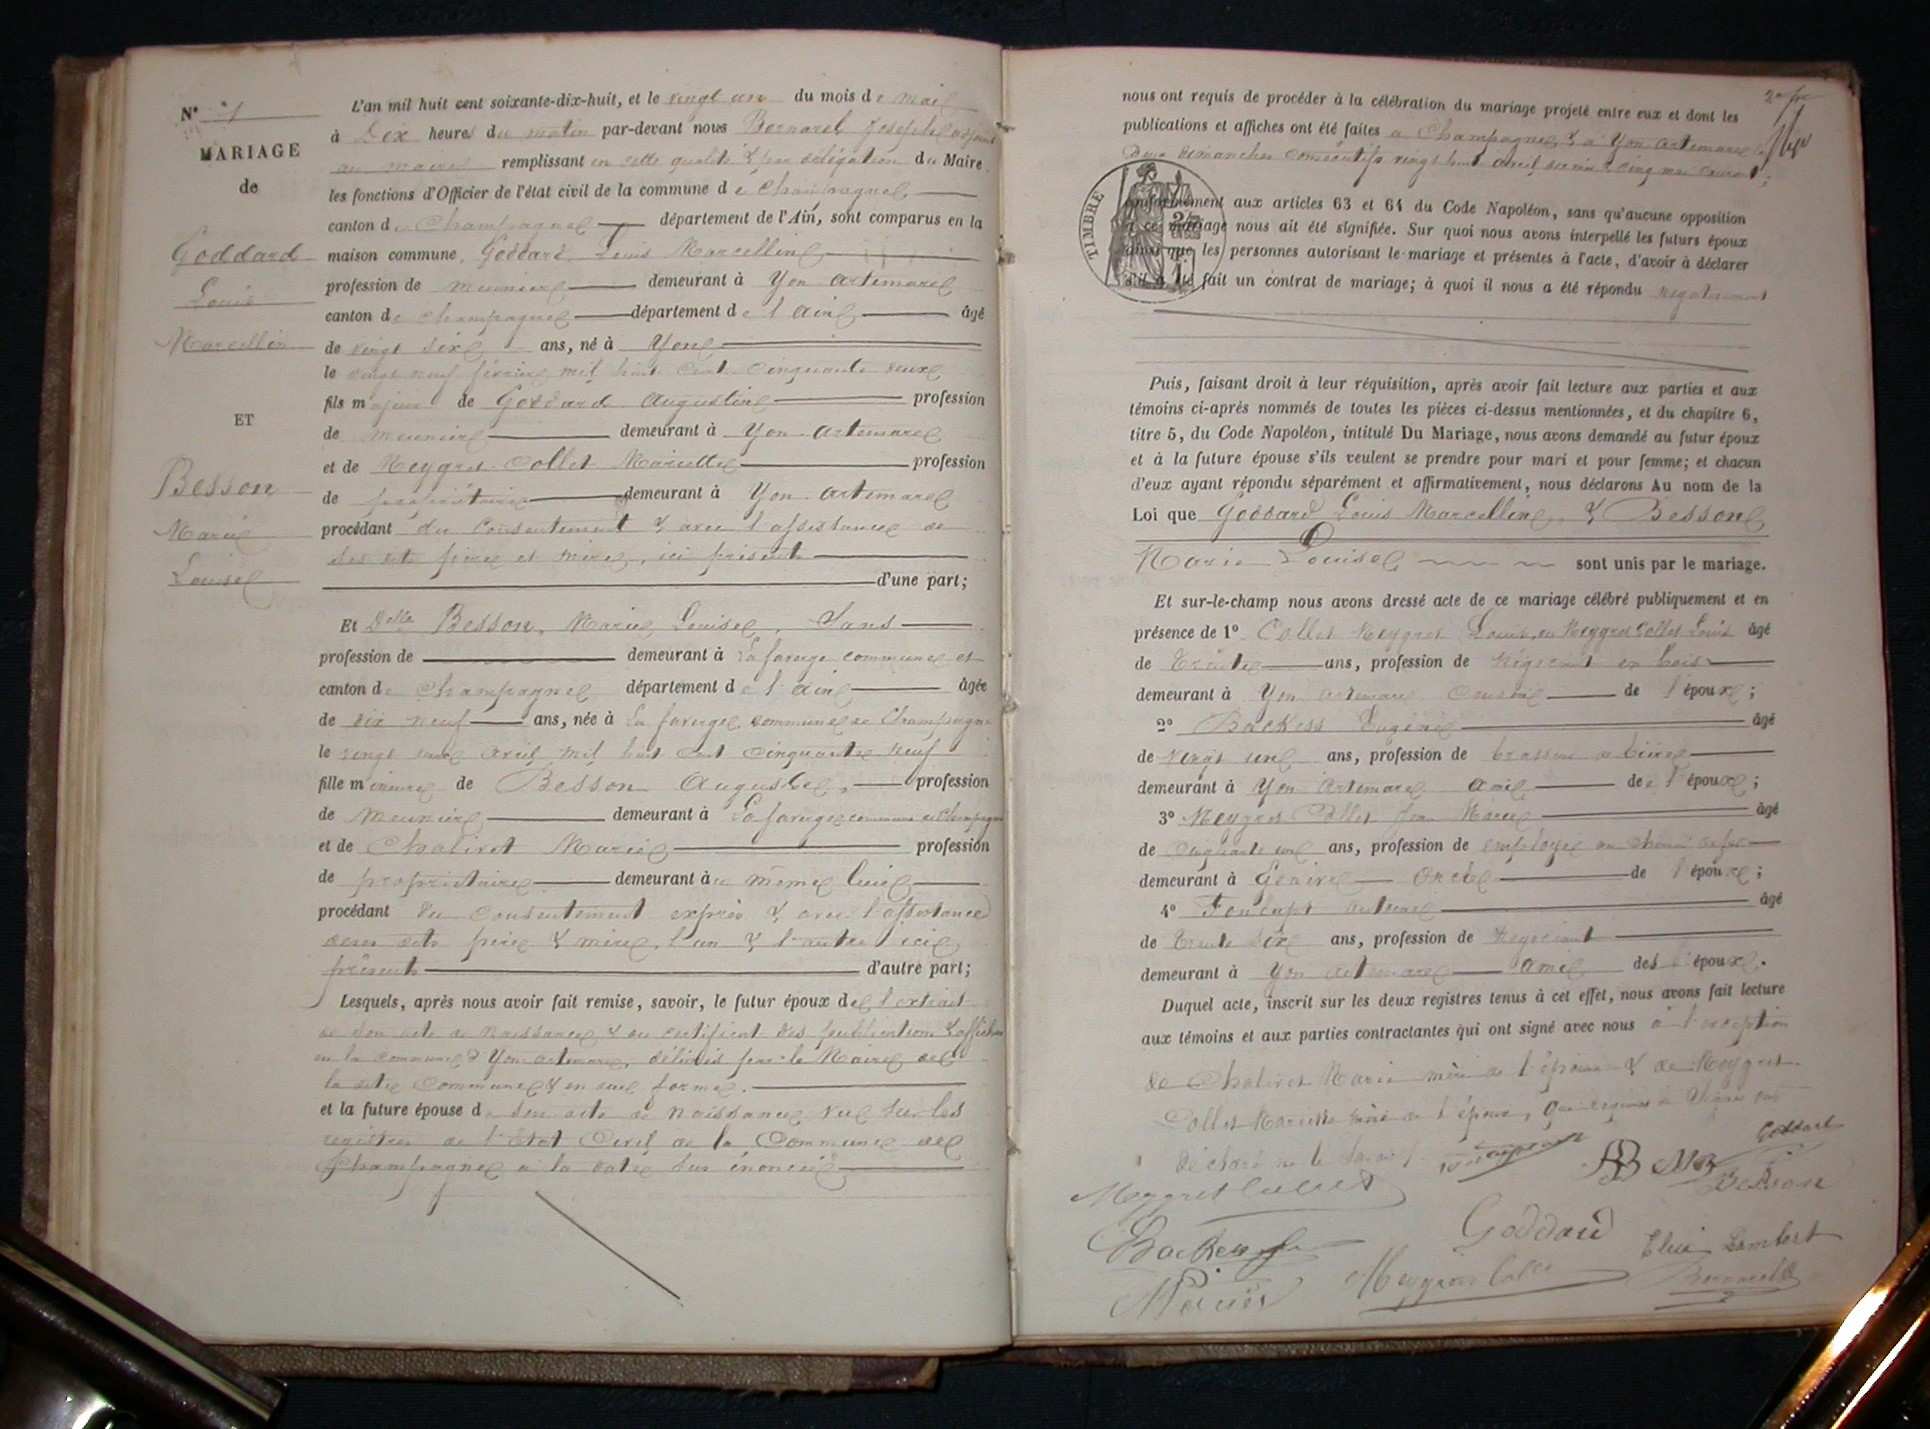 N° 7
MARIAGE
de
Goddard
Louis
Marcellin
ET
Besson
Marie
Louise
L'an mil huit cent soixante-dix-huit, et le vingt un du mois de mai
à Dix heures du matin par-devant nous Bernard Joseph adjoint
au maire remplissant en cette qualité & par délégation du Maire
les fonctions d'Officier de l'état civil de la commune de Champagne
canton de Champagne département de l'Ain, sont comparus en la
maison commune, Goddard Louis Marcellin
profession de meunier demeurant à Yon artemare
canton de Champagne département de l'Ain âgé
de vingt six ans, né à Yon
le vingt neuf février mil huit cent cinquante deux
fils majeur de Goddard Augustin profession
de meunier demeurant à Yon artemare
et de Meygret Collet Mariette profession
de propriétaire demeurant à Yon artemare
procédant du consentement & avec l'assistance de
ses dits père et mère, ici présent
d'une part;
Et Delle Besson, Marie Louise, Sans
profession de demeurant à La favergе commune et
canton de Champagne département de l'Ain âgée
de dix neuf ans, née à La faverge commune de Champagne
le vingt avril mil huit cent cinquante neuf
fille mineure de Besson Auguste, profession
de Meunier demeurant à La faverge commune de Champagne
et de Chaliret Marie profession
de propriétaire demeurant à même lieu
procédant du consentement exprès & avec l'assistance
de ses dits père & mère, l'un & l'autre ici
présent d'autre part;
Lesquels, après nous avoir fait remise, savoir, le futur époux de l'extrait
de son acte de naissance, & du certificat des publications & affiches
en la commune d'Yon artemare, délivrés par le Maire de
la dite commune & en due forme.
et la future épouse de son acte de naissance vu sur les
registres de l'Etat Civil de la Commune de
Champagne à la date sus énoncée
2e fre
nous ont requis de procéder à la célébration du mariage projeté entre eux et dont les
publications et affiches ont été faites à Champagne & à Yon artemare les
Deux dimanches consécutifs vingt huit avril dernier & cinq mai courant;
TIMBRE
conformément aux articles 63 et 64 du Code Napoléon, sans qu'aucune opposition
à ce mariage nous ait été signifiée. Sur quoi nous avons interpellé les futurs époux
ainsi que les personnes autorisant le mariage et présentes à l'acte, d'avoir à déclarer
s'il a été fait un contrat de mariage; à quoi il nous a été répondu négativement
Puis, faisant droit à leur réquisition, après avoir fait lecture aux parties et aux
témoins ci-après nommés de toutes les pièces ci-dessus mentionnées, et du chapitre 6,
titre 5, du Code Napoléon, intitulé Du Mariage, nous avons demandé au futur époux
et à la future épouse s'ils veulent se prendre pour mari et pour femme; et chacun
d'eux ayant répondu séparément et affirmativement, nous déclarons Au nom de la
Loi que Goddard Louis Marcellin, & Besson
Marie Louise sont unis par le mariage.
Et sur-le-champ nous avons dressé acte de ce mariage célébré publiquement et en
présence de 1° Collet Meygret Louis, ou Meygret Collet Louis âgé
de Trente ans, profession de Négociant en bois
demeurant à Yon artemare Cousin de l'époux;
2° Backess Eugène âgé
de vingt un ans, profession de brasseur de bière
demeurant à Yon artemare ami de l'époux;
3° Meygret Collet Jean Marie âgé
de Cinquante un ans, profession de employé au chemin de fer
demeurant à Genève Oncle de l'époux;
4° Foulupt Antoine âgé
de Trente six ans, profession de Négociant
demeurant à Yon artemare ami des époux.
Duquel acte, inscrit sur les deux registres tenus à cet effet, nous avons fait lecture
aux témoins et aux parties contractantes qui ont signé avec nous à l'exception
de Chaliret Marie mère de l'épouse & de Meygret
Collet Mariette mère de l'époux, que requises de signer ont
déclaré ne le savoir
Goddard
AB MB Besson
Meygret Collet
Backess
Goddard
Elise Lambert
Mercier
Meygret Collet
Bernard